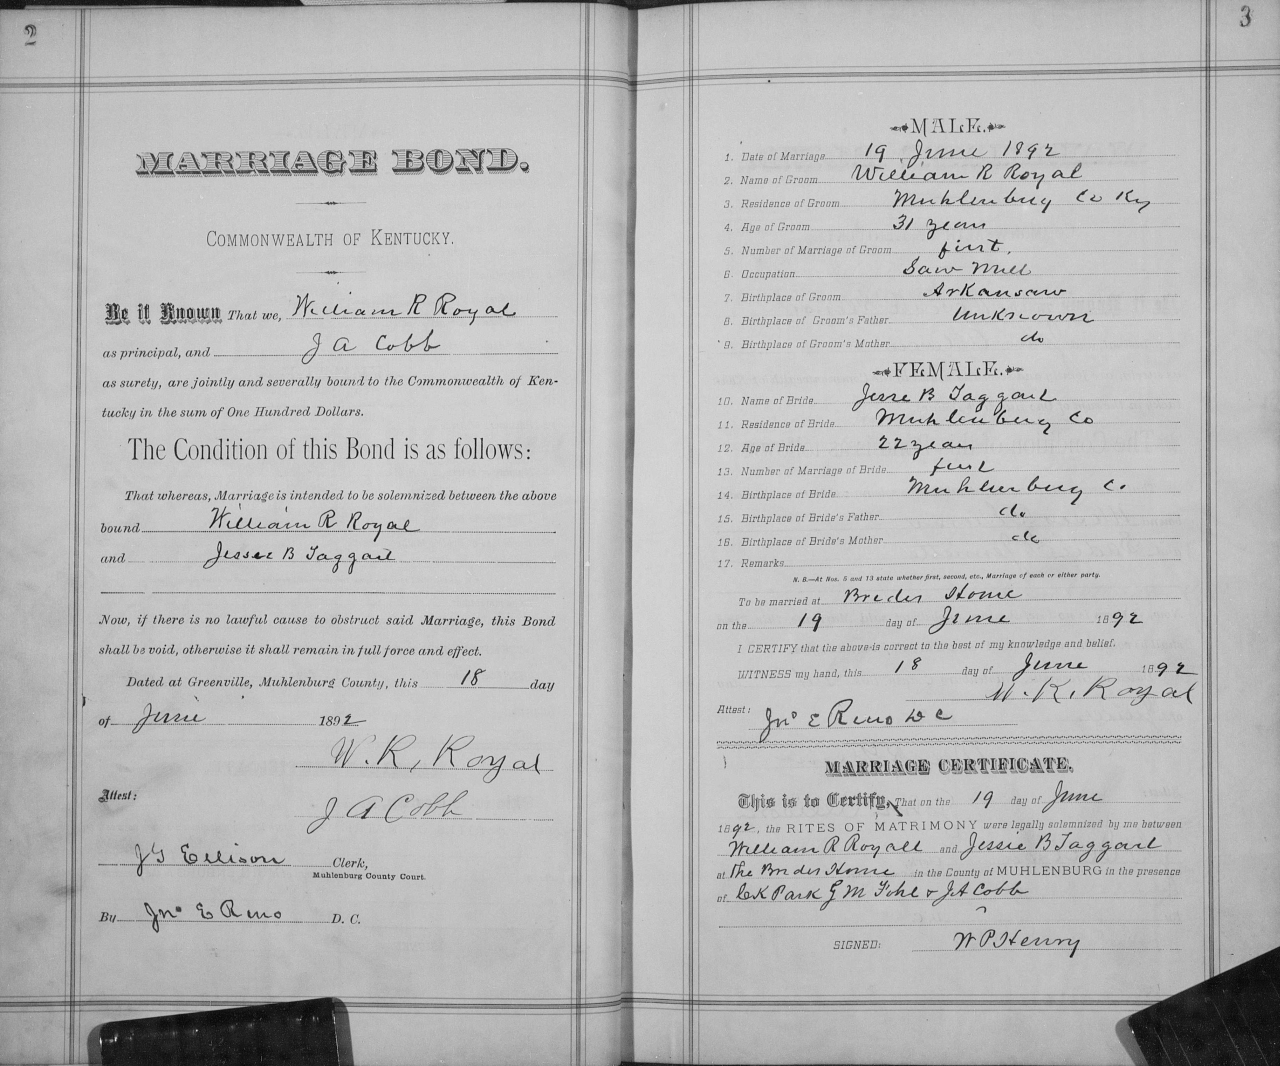 2
MARRIAGE BOND.
COMMONWEALTH OF KENTUCKY.
Be it Known That we, William R Royal
as principal, and J A Cobb
as surety, are jointly and severally bound to the Commonwealth of Ken-
tucky in the sum of One Hundred Dollars.
The Condition of this Bond is as follows:
That whereas, Marriage is intended to be solemnized between the above
bound William R Royal
and Jessee B Taggart
Now, if there is no lawful cause to obstruct said Marriage, this Bond
shall be void, otherwise it shall remain in full force and effect.
Dated at Greenville, Muhlenburg County, this 18 day
of June 1892
W. R, Royal
Attest:
J A Cobb
J G Ellison Clerk,
Muhlenburg County Court.
By Jno E Reno D. C.
3
MALE.
1. Date of Marriage 19 June 1892
2. Name of Groom William R Royal
3. Residence of Groom Muhlenburg Co Ky
4. Age of Groom 31 years
5. Number of Marriage of Groom first.
6. Occupation Saw Mill
7. Birthplace of Groom Arkansaw
8. Birthplace of Groom's Father Unknown
9. Birthplace of Groom's Mother do
FEMALE.
10. Name of Bride Jesse B Taggart
11. Residence of Bride Muhlenburg Co
12. Age of Bride 22 years
13. Number of Marriage of Bride first
14. Birthplace of Bride Muhlenburg C.
15. Birthplace of Bride's Father do
16. Birthplace of Bride's Mother do
17. Remarks
N. B.—At Nos. 5 and 13 state whether first, second, etc., Marriage of each or either party.
To be married at Brides Home
on the 19 day of June 1892
I CERTIFY that the above is correct to the best of my knowledge and belief.
WITNESS my hand, this 18 day of June 1892
W. R. Royal
Attest: Jno E Reno D C
MARRIAGE CERTIFICATE.
This is to Certify, That on the 19 day of June
1892, the RITES OF MATRIMONY were legally solemnized by me between
William R Royall and Jessie B Taggart
at The Brides Home in the County of MUHLENBURG in the presence
of C K Park G M & J A Cobb
SIGNED: W P Henry